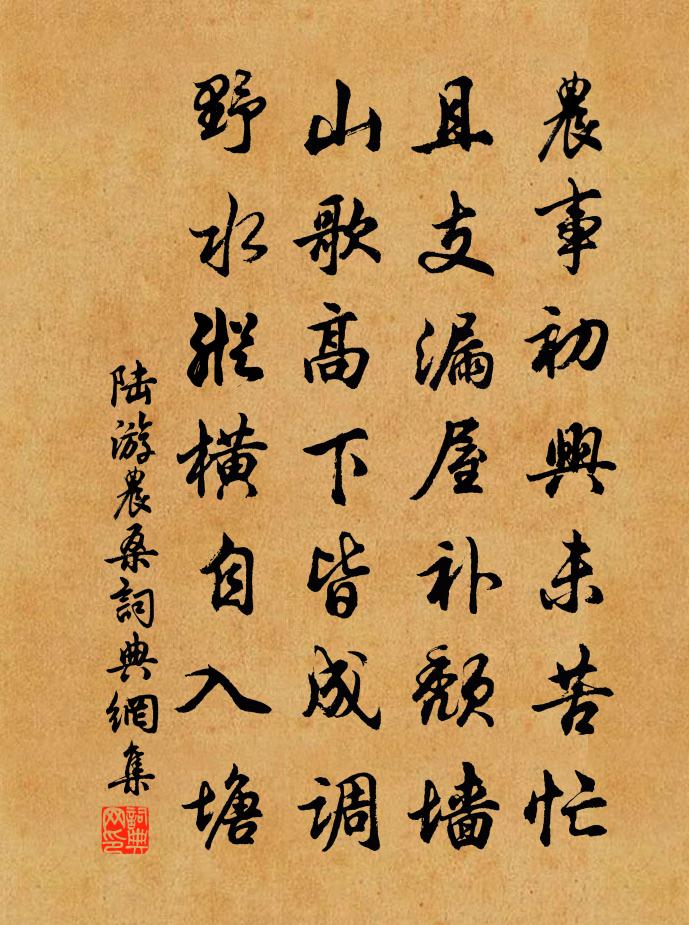 農事初興未苦忙
且支漏屋补颓墙
山歌高下皆成调
野水縱横自入塘
陆游農桑詞典網集
詞典网印